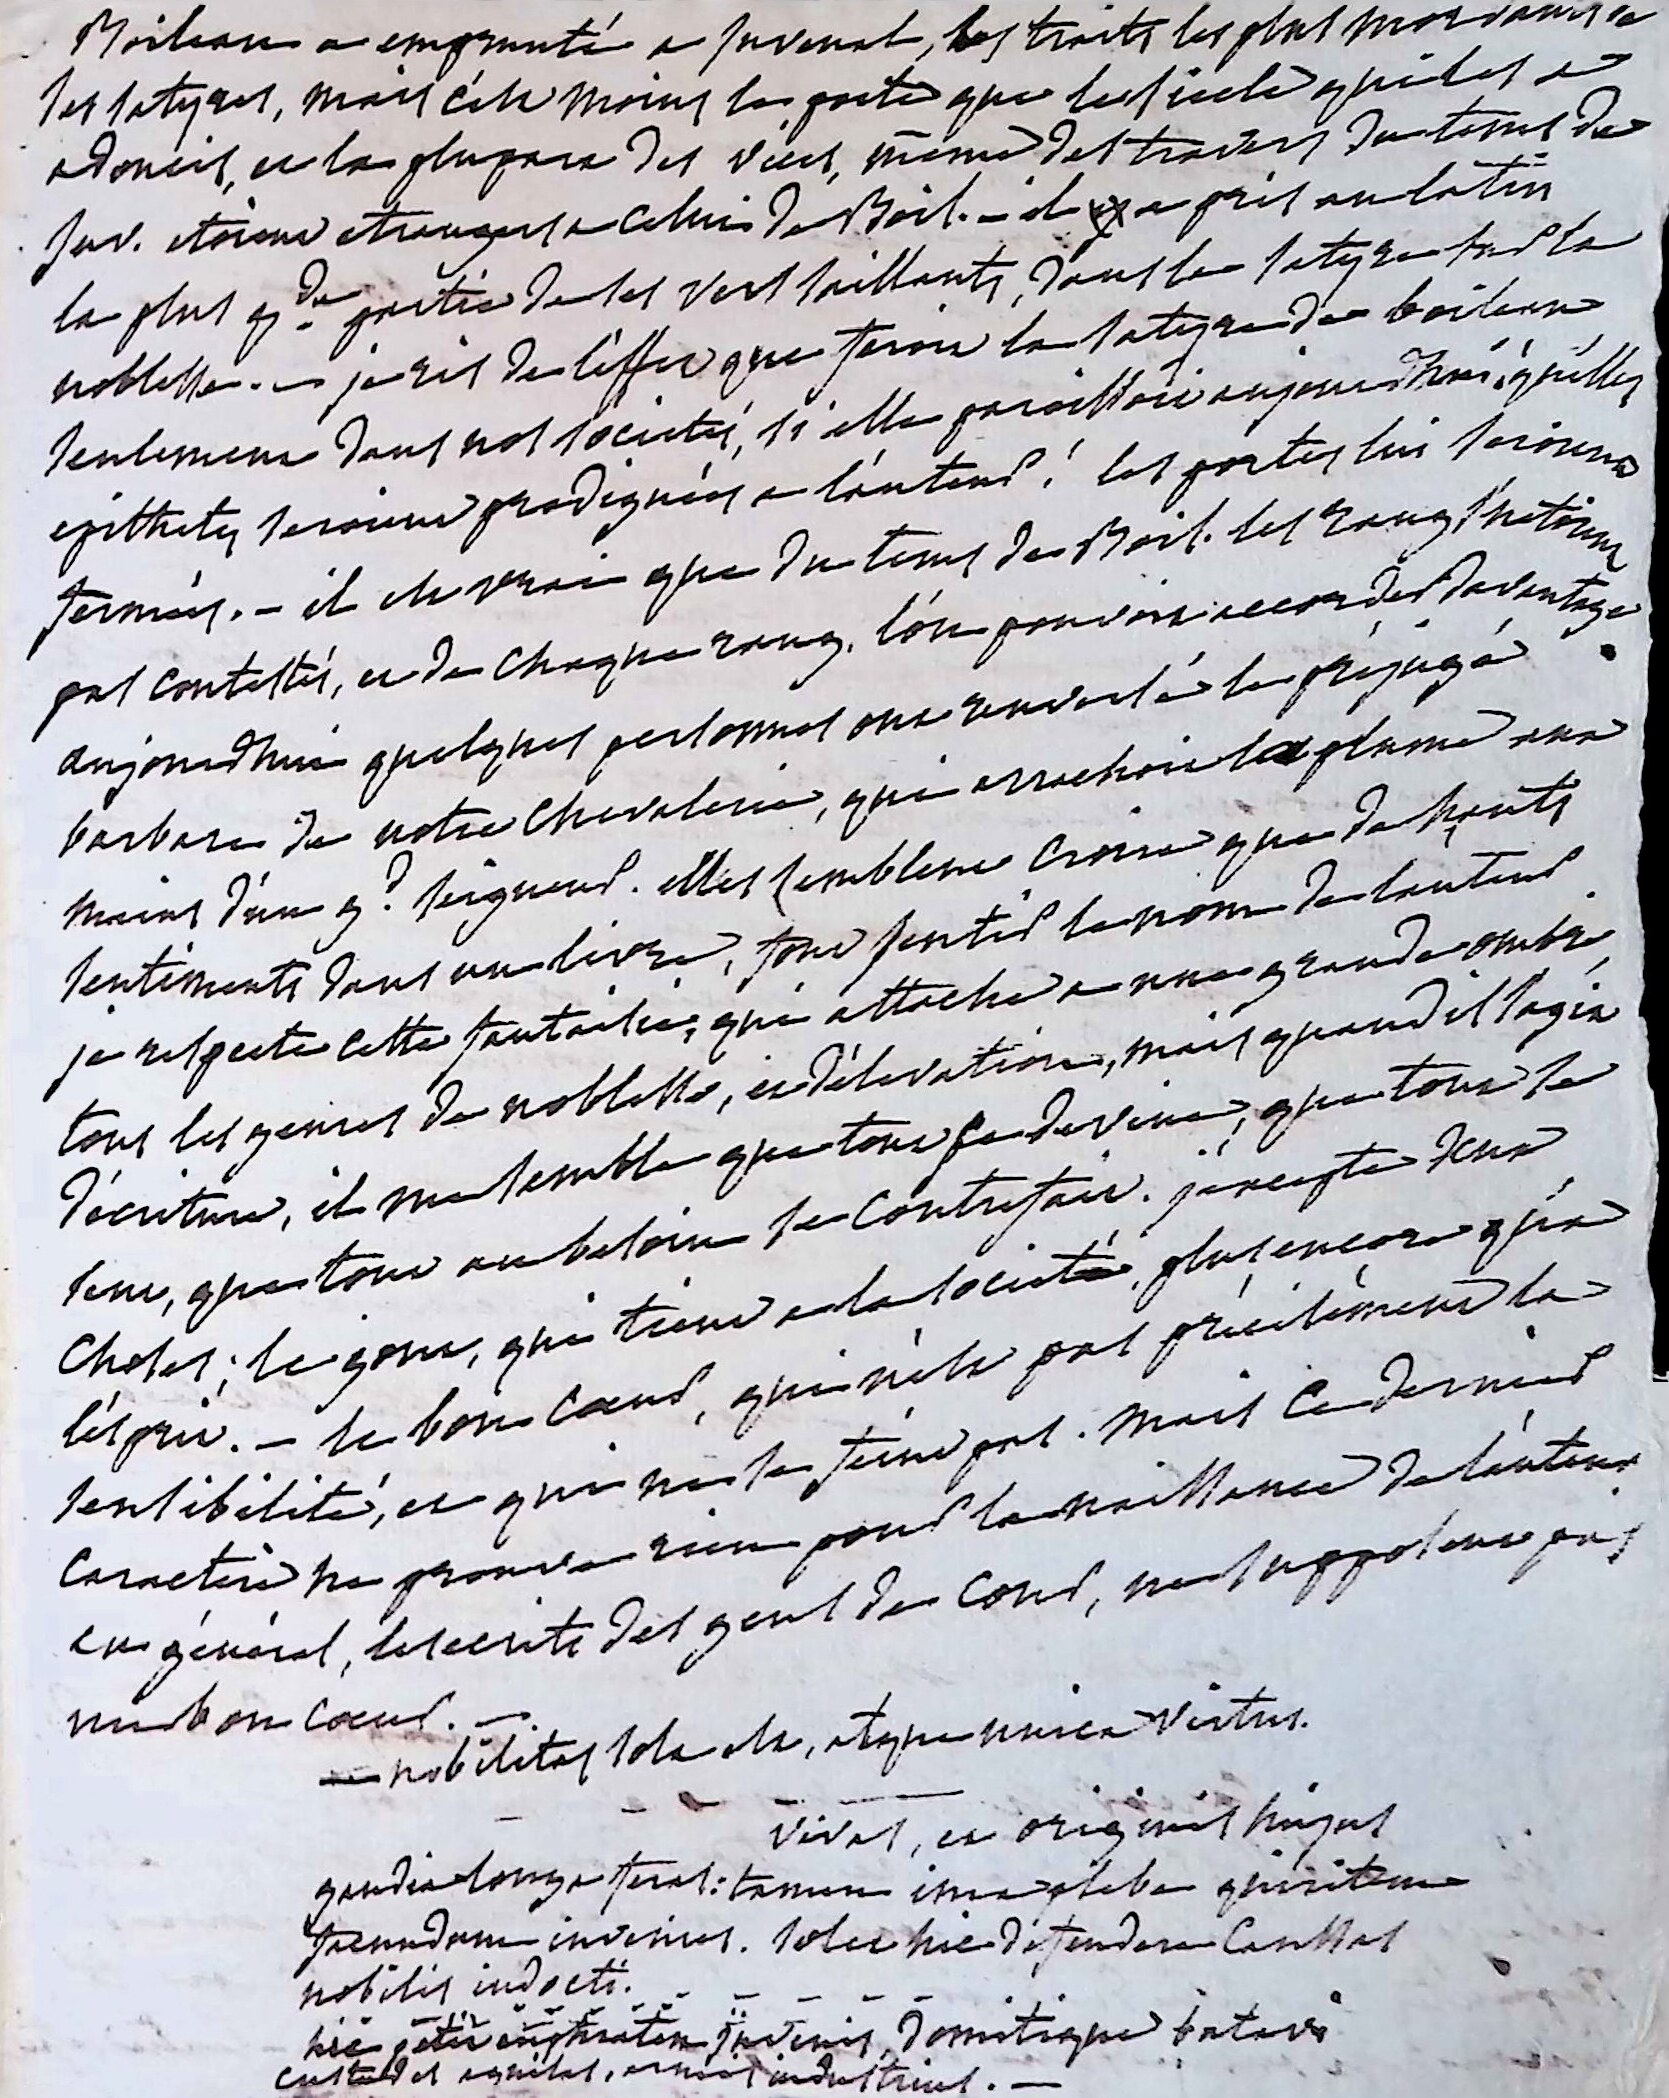 Boileau a emprunté a Juvenal, les traits les plus mordants de
ses satyres, mais c'est moins le poëte que le siecle qui les a
adoucis, et la plupart des vices, même des travers du tems de
Juv. etoient etrangers a celui de Boil. – il a pris au latin
la plus gde partie de ses vers saillants, dans la satyre sur la
noblesse. – je ris de l'effet que feroit la satyre de boileau
seulement dans nos societés, si elle paroissoit aujourd'hui! qu'elles
epithetes seroient prodiguées a l'auteur! les portes lui seroient
fermées. – il est vrai que du tems de Boil. les rangs n'etoient
pas contestés, et de chaque rang, l'on pouvoit accorder davantage
aujourdhui quelques personnes ont renversé le préjugé
barbare de notre chevalerie, qui arrachoit la plume aux
mains d'un gd seigneur. elles semblent croire que de hauts
sentiments dans un livre, font sentir le nom de l'auteur
je respecte cette fantaisie, qui attache a une grande ombre,
tous les genres de noblesse, et d'élevation, mais quand il s'agit
d'écriture, il me semble que tout se devine, que tout se
sent, que tout au besoin se contrefait. j'excepte deux
choses; le gout, qui tient a la societé, plus encore qu'a
l'esprit. – le bon coeur, qui n'est pas précisément la
sensibilité, et qui ne se feint pas. mais ce dernier
caractère ne prouve rien pour la naissance de l'auteur
en général, les ecrits des gens de cour, ne supposent pas
un bon coeur. –
– nobilitas sola est, atque unica virtus.
– – – – vivas, et originis hujus
gaudia longa feras: tamen ima plebe quiritem
facundum invenies. solet hic defendere causas
nobilis indocti. – – – –
hic petit euphraten juvenis, domitique batavi
custodes aquilas, armis industrius. –